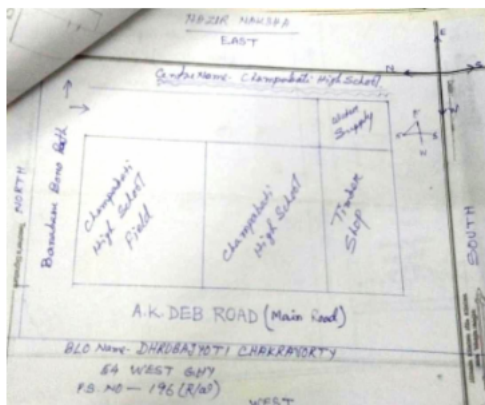 EAST
Centre Name - Champabati High School
N
E
S
W
Water
Supply
NORTH
Champabati
High School
Field
Champabati
High School
Timber
Shop
SOUTH
A.K. DEB ROAD (Main Road)
BLO Name- DHRUBAJYOTI CHAKRAVORTY
54 WEST GHY
P.S. NO - 196 (R/W)
WEST